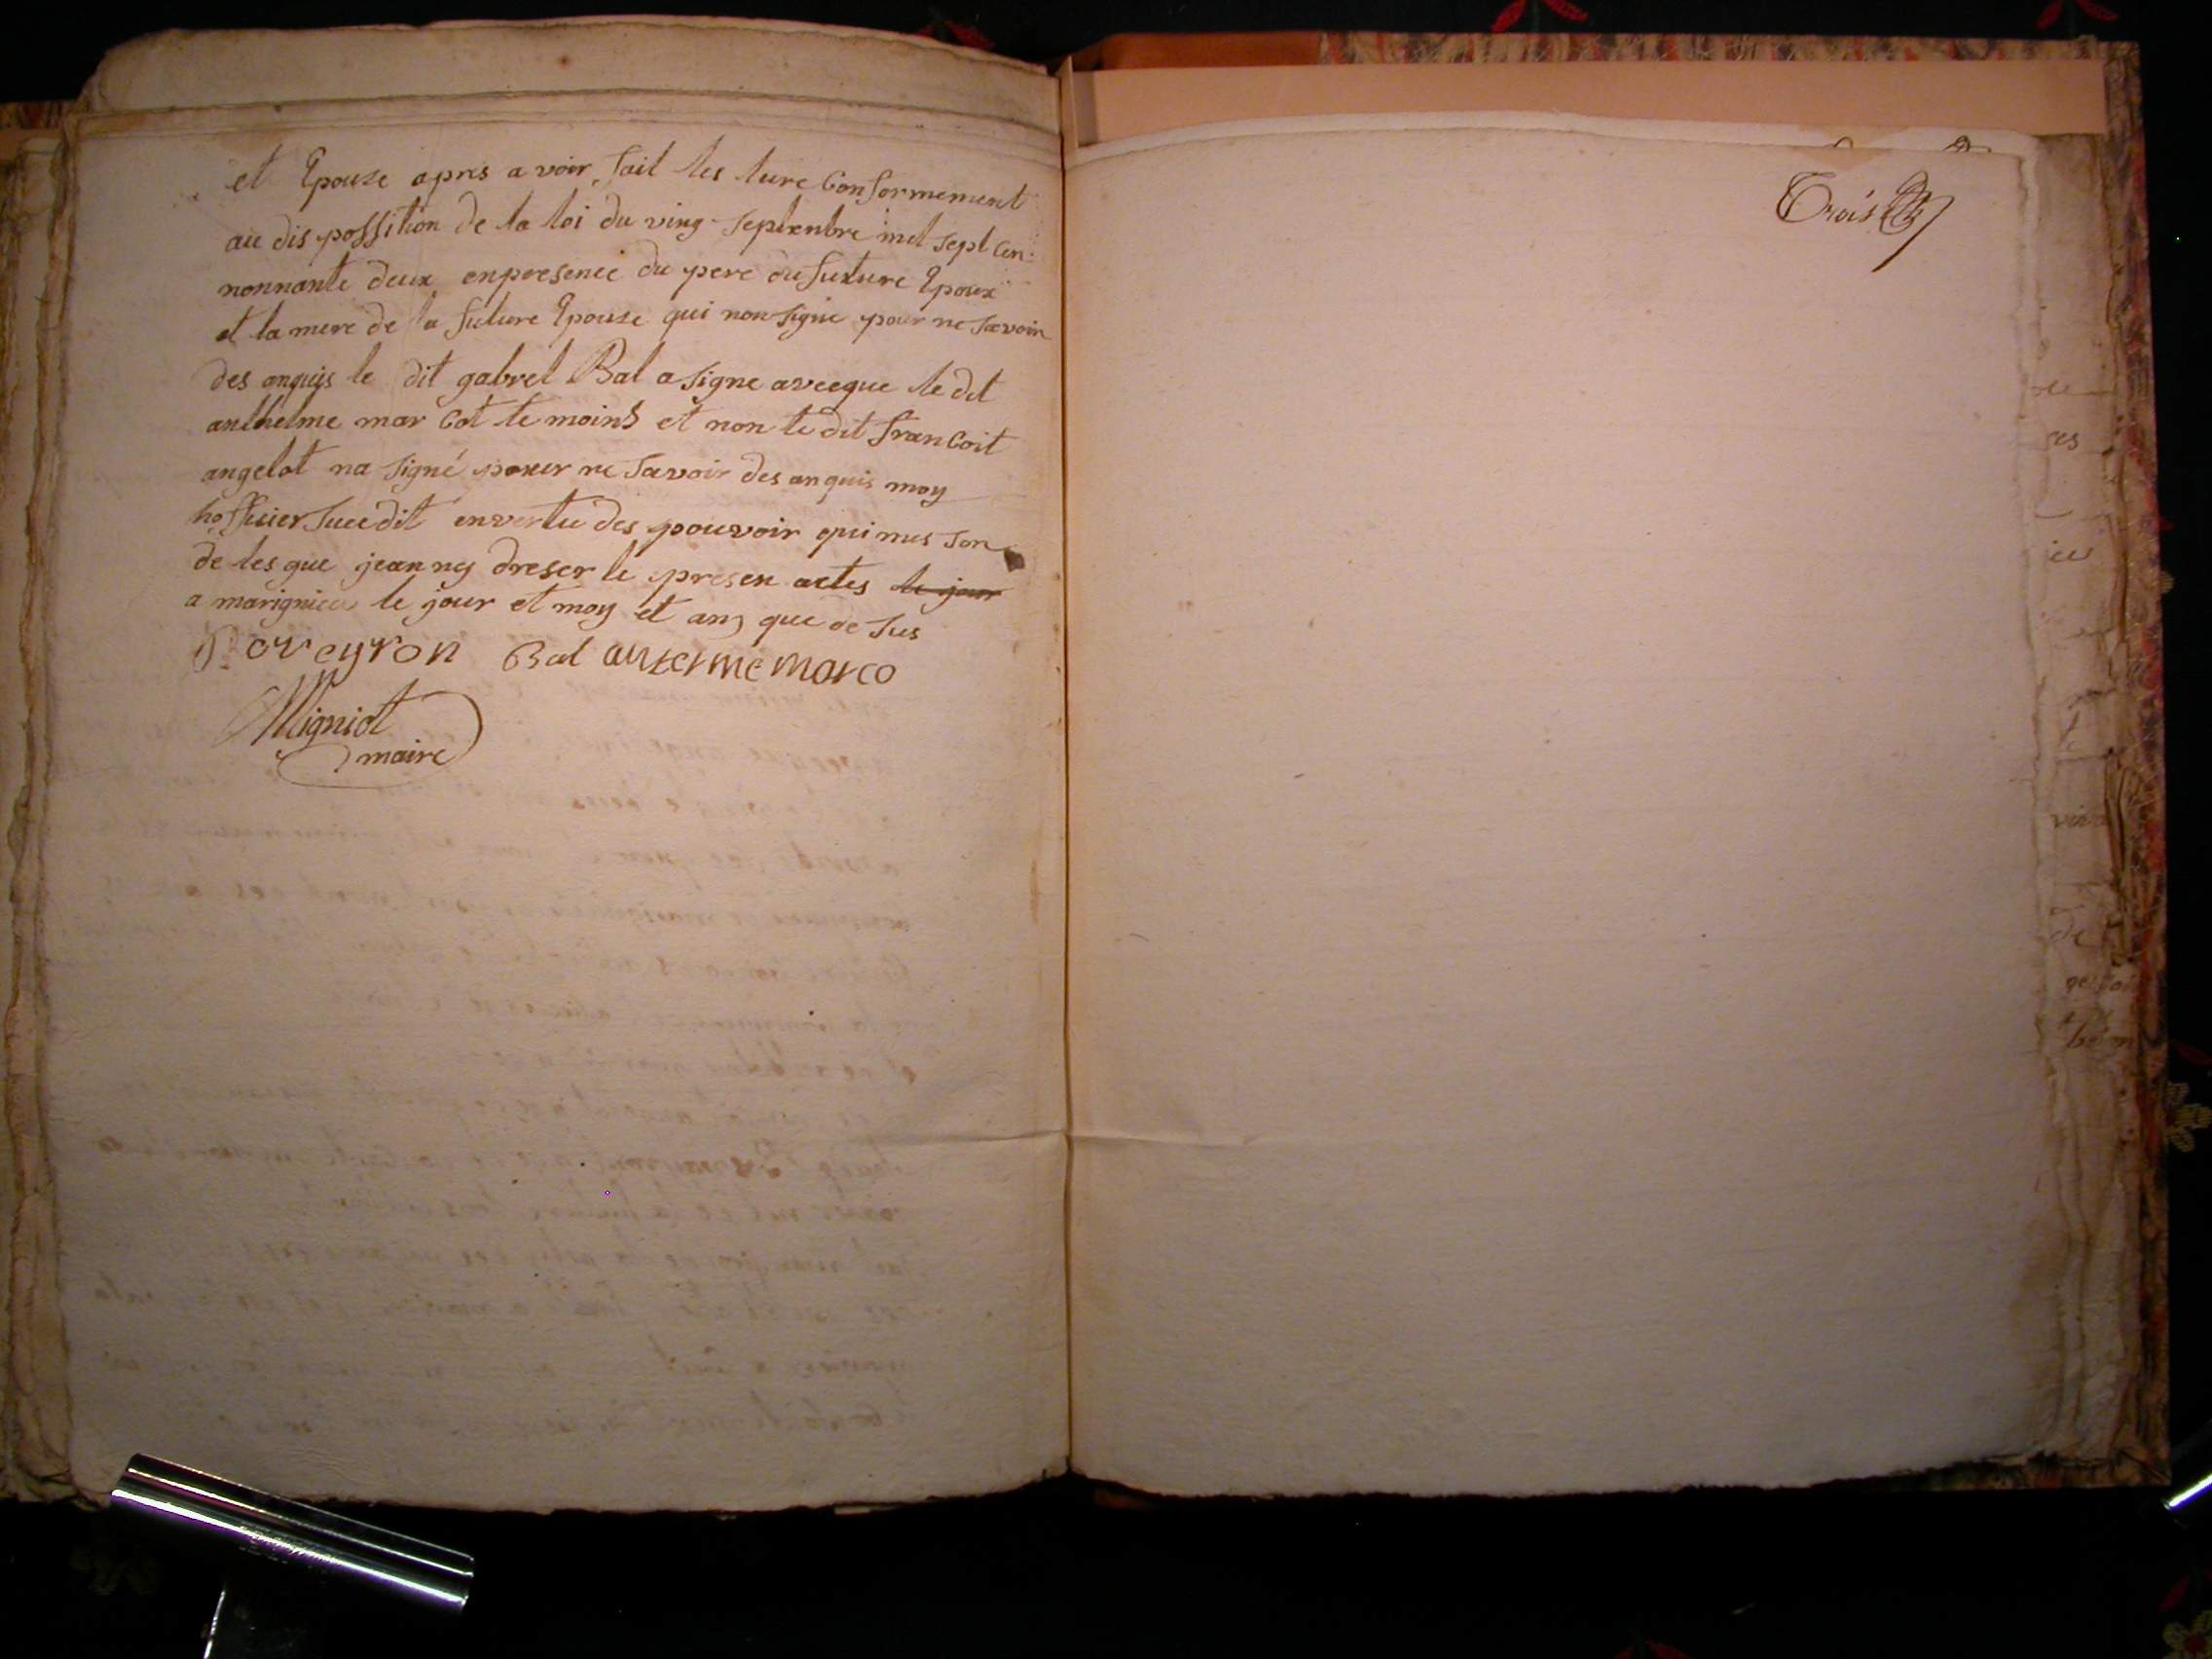 et Epouze apres a voir fait les ture Conformement
au dis possition de la loi du ving Septenbre mil Sept Cen
nonnante deux enpresence du pere du future Epoux
et la mere de la future Epouze qui non signe pour ne Savoir
des anquis le dit gabrel Bal a signe avecque le dit
anthelme mar Cot te moins et non le dit franCoit
angelot na signé pour ne Savoir des anquis moy
hoffisier Sucedit envertu des pouvoir qui mes Son
de les gue jeanney dreser le presen actes le jour
a marignieu le jour et moy et ans que de Sus
Poveyron Bal anterme marco
Migniot
maire
Trois